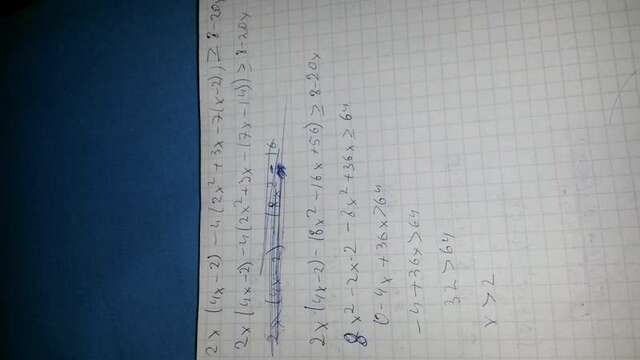 2x (4x-2) - 4 (2x² + 3x - 7(x-2) ) ≥ 8-20x
2x (4x-2) - 4(2x² + 3x - (7x - 14)) ≥ 8-20x
2x (4x-2) - (8x² - 16
2x (4x-2) - (8x² - 16x + 56) ≥ 8-20x
8x² - 2x-2 - 8x² + 36x ≥ 64
0-4x + 36x > 64
-4 + 36x > 64
32 > 64
x > 2